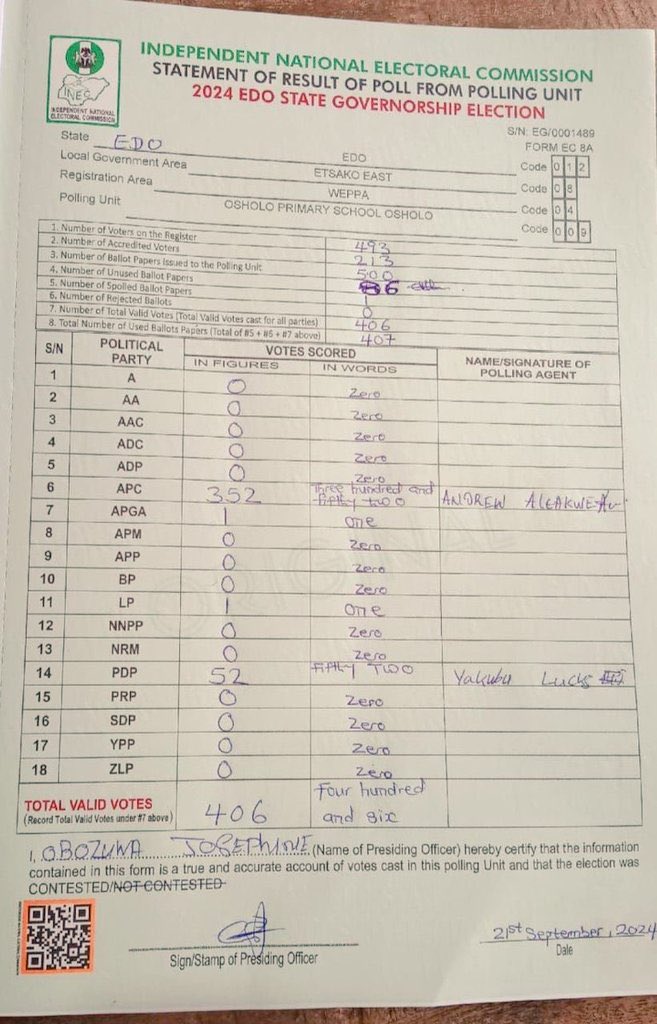 INDEPENDENT NATIONAL ELECTORAL COMMISSION
STATEMENT OF RESULT OF POLL FROM POLLING UNIT
2024 EDO STATE GOVERNORSHIP ELECTION
INEC
INDEPENDENT NATIONAL ELECTORAL COMMISSION
S/N: EG/0001489
FORM EC 8A
State EDO EDO Code 012
Local Government Area ETSAKO EAST Code 08
Registration Area WEPPA Code 04
Polling Unit OSHOLO PRIMARY SCHOOL OSHOLO Code 009
1. Number of Voters on the Register 493
2. Number of Accredited Voters 213
3. Number of Ballot Papers Issued to the Polling Unit 500
4. Number of Unused Ballot Papers 6
5. Number of Spoiled Ballot Papers 1
6. Number of Rejected Ballots 0
7. Number of Total Valid Votes (Total Valid Votes cast for all parties) 406
8. Total Number of Used Ballots Papers (Total of #5 + #6 + #7 above) 407
S/N POLITICAL PARTY VOTES SCORED NAME/SIGNATURE OF POLLING AGENT
IN FIGURES IN WORDS
1 A 0 Zero
2 AA 0 Zero
3 AAC 0 Zero
4 ADC 0 Zero
5 ADP 0 Zero
6 APC 352 Three hundred and fifty two ANDREW
7 APGA 1 one
8 APM 0 Zero
9 APP 0 Zero
10 BP 0 Zero
11 LP 1 One
12 NNPP 0 Zero
13 NRM 0 Zero
14 PDP 52 Fifty Two Yakubu Lucky
15 PRP 0 Zero
16 SDP 0 Zero
17 YPP 0 Zero
18 ZLP 0 Zero
TOTAL VALID VOTES 406 Four hundred and six
(Record Total Valid Votes under #7 above)
I, OBOZUWA JOSEPHINE (Name of Presiding Officer) hereby certify that the information
contained in this form is a true and accurate account of votes cast in this polling Unit and that the election was
CONTESTED/NOT CONTESTED
21st September, 2024
Sign/Stamp of Presiding Officer Date
ORIGINAL